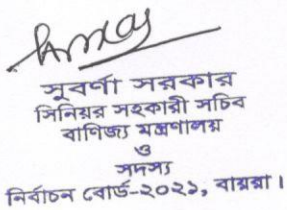 সুবর্ণা সরকার
সিনিয়র সহকারী সচিব
বাণিজ্য মন্ত্রণালয়
ও
সদস্য
নির্বাচন বোর্ড-২০২১, বায়রা ।